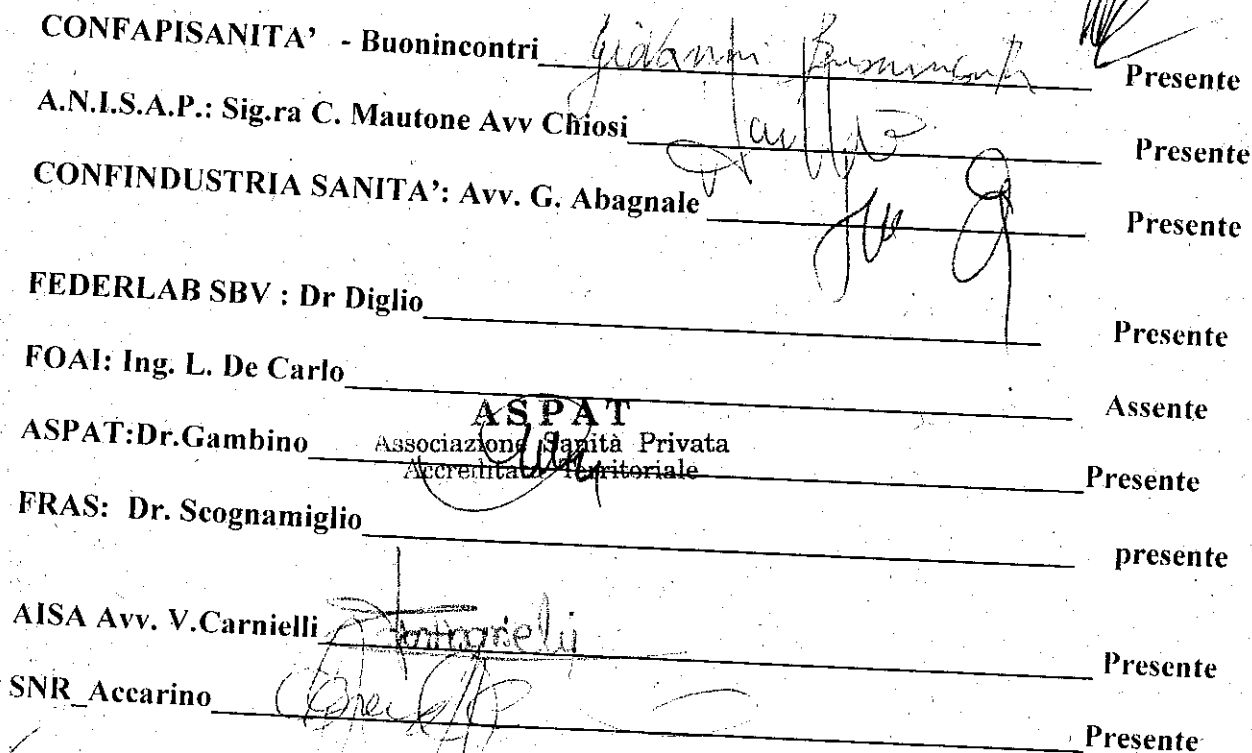 CONFAPISANITA' - Buonincontri Giovanni Buonincontri Presente
A.N.I.S.A.P.: Sig.ra C. Mautone Avv Chiosi Presente
CONFINDUSTRIA SANITA': Avv. G. Abagnale Presente
FEDERLAB SBV : Dr Diglio Presente
FOAI: Ing. L. De Carlo Assente
ASPAT
ASPAT:Dr.Gambino Associazione Sanità Privata Presente
Accreditata Territoriale
FRAS: Dr. Scognamiglio presente
AISA Avv. V.Carnielli Presente
SNR_Accarino Presente